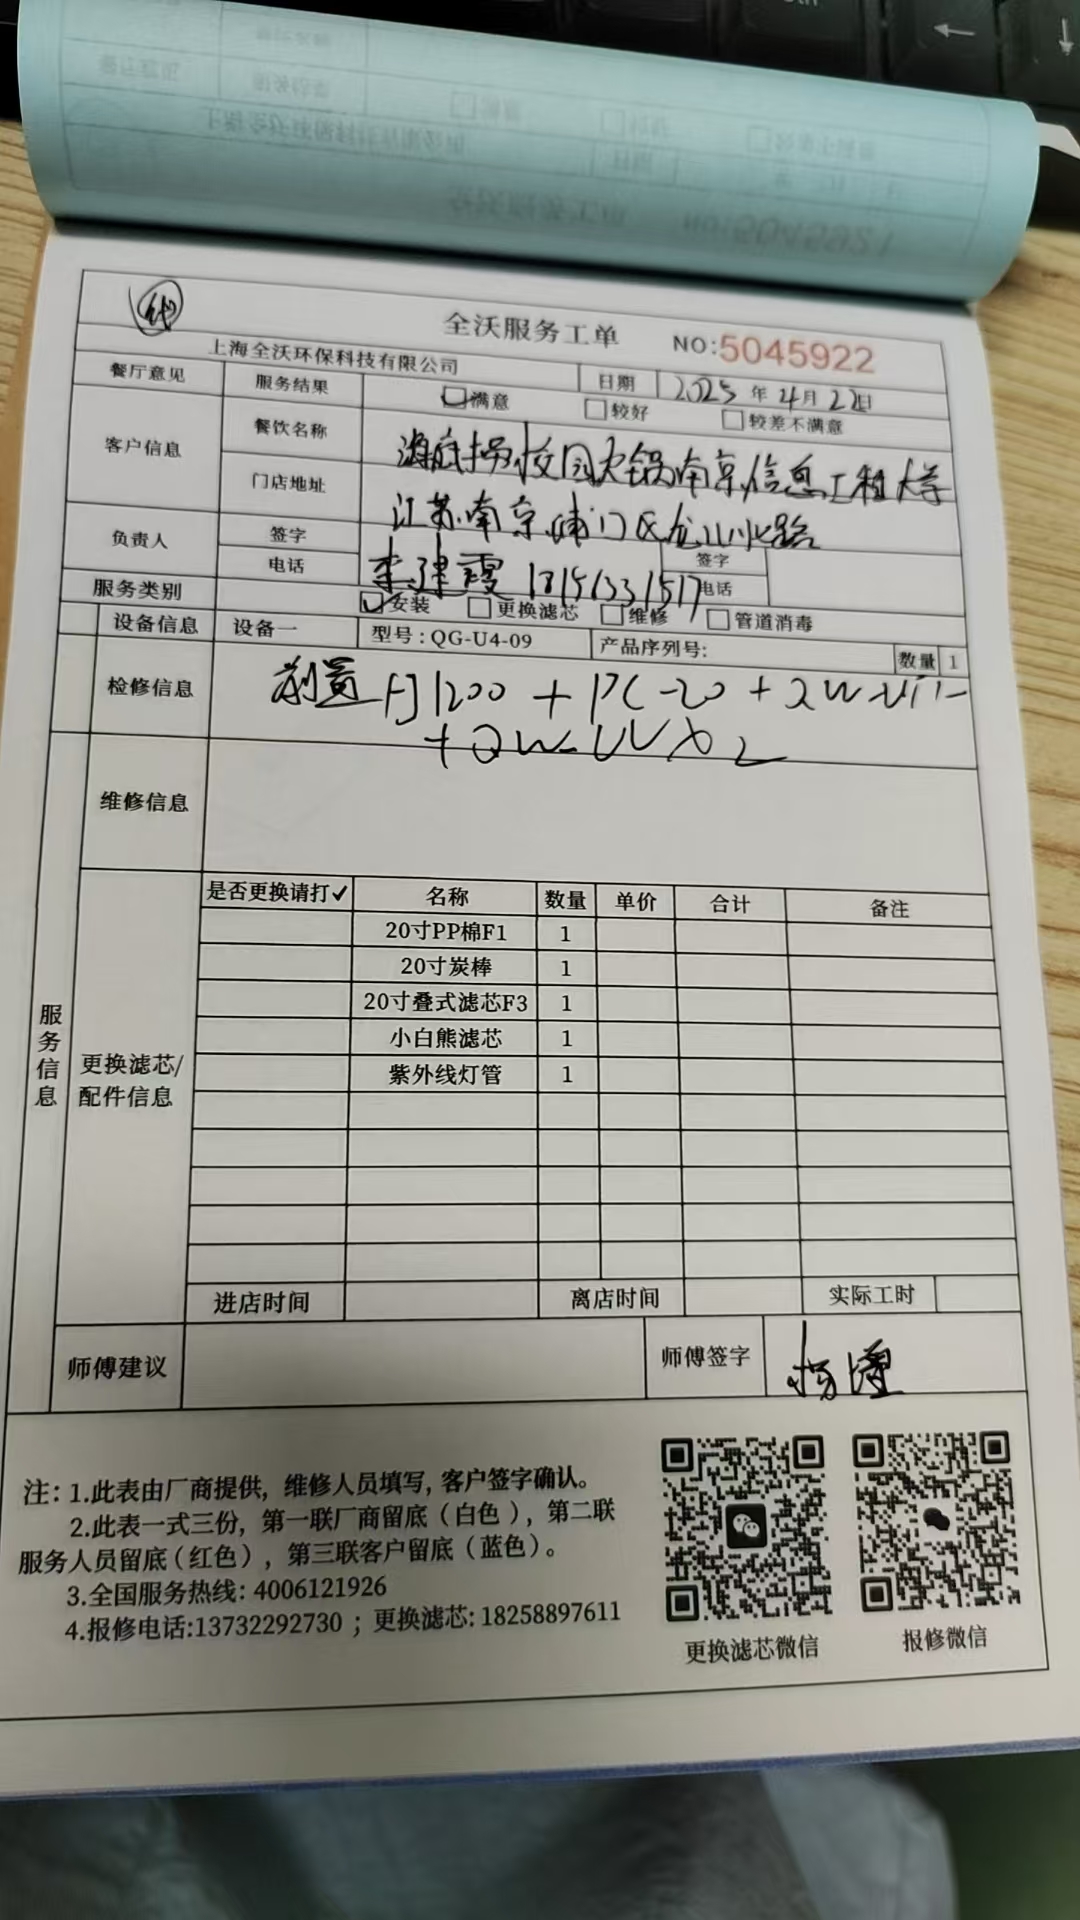 全沃服务工单 NO:5045922
上海全沃环保科技有限公司 日期 2025年4月22日
餐厅意见 服务结果 满意 较好 较差不满意
客户信息 餐饮名称 海底捞校园火锅南京信息工程大学
门店地址 江苏南京浦口区龙山北路
负责人 签字 签字
电话 18151331517 电话
服务类别 ✓安装 更换滤芯 维修 管道消毒
设备信息 设备一 型号:QG-U4-09 产品序列号: 数量 1
检修信息 前置FJ1200 + PC-20 +
维修信息
服务信息
更换滤芯/
配件信息
是否更换请打✓ 名称 数量 单价 合计 备注
20寸PP棉F1 1
20寸炭棒 1
20寸叠式滤芯F3 1
小白熊滤芯 1
紫外线灯管 1
进店时间 离店时间 实际工时
师傅建议 师傅签字
注: 1.此表由厂商提供, 维修人员填写, 客户签字确认。
2.此表一式三份, 第一联厂商留底 (白色), 第二联
服务人员留底 (红色), 第三联客户留底 (蓝色)。
3.全国服务热线: 4006121926
4.报修电话:13732292730 ; 更换滤芯: 18258897611
更换滤芯微信 报修微信